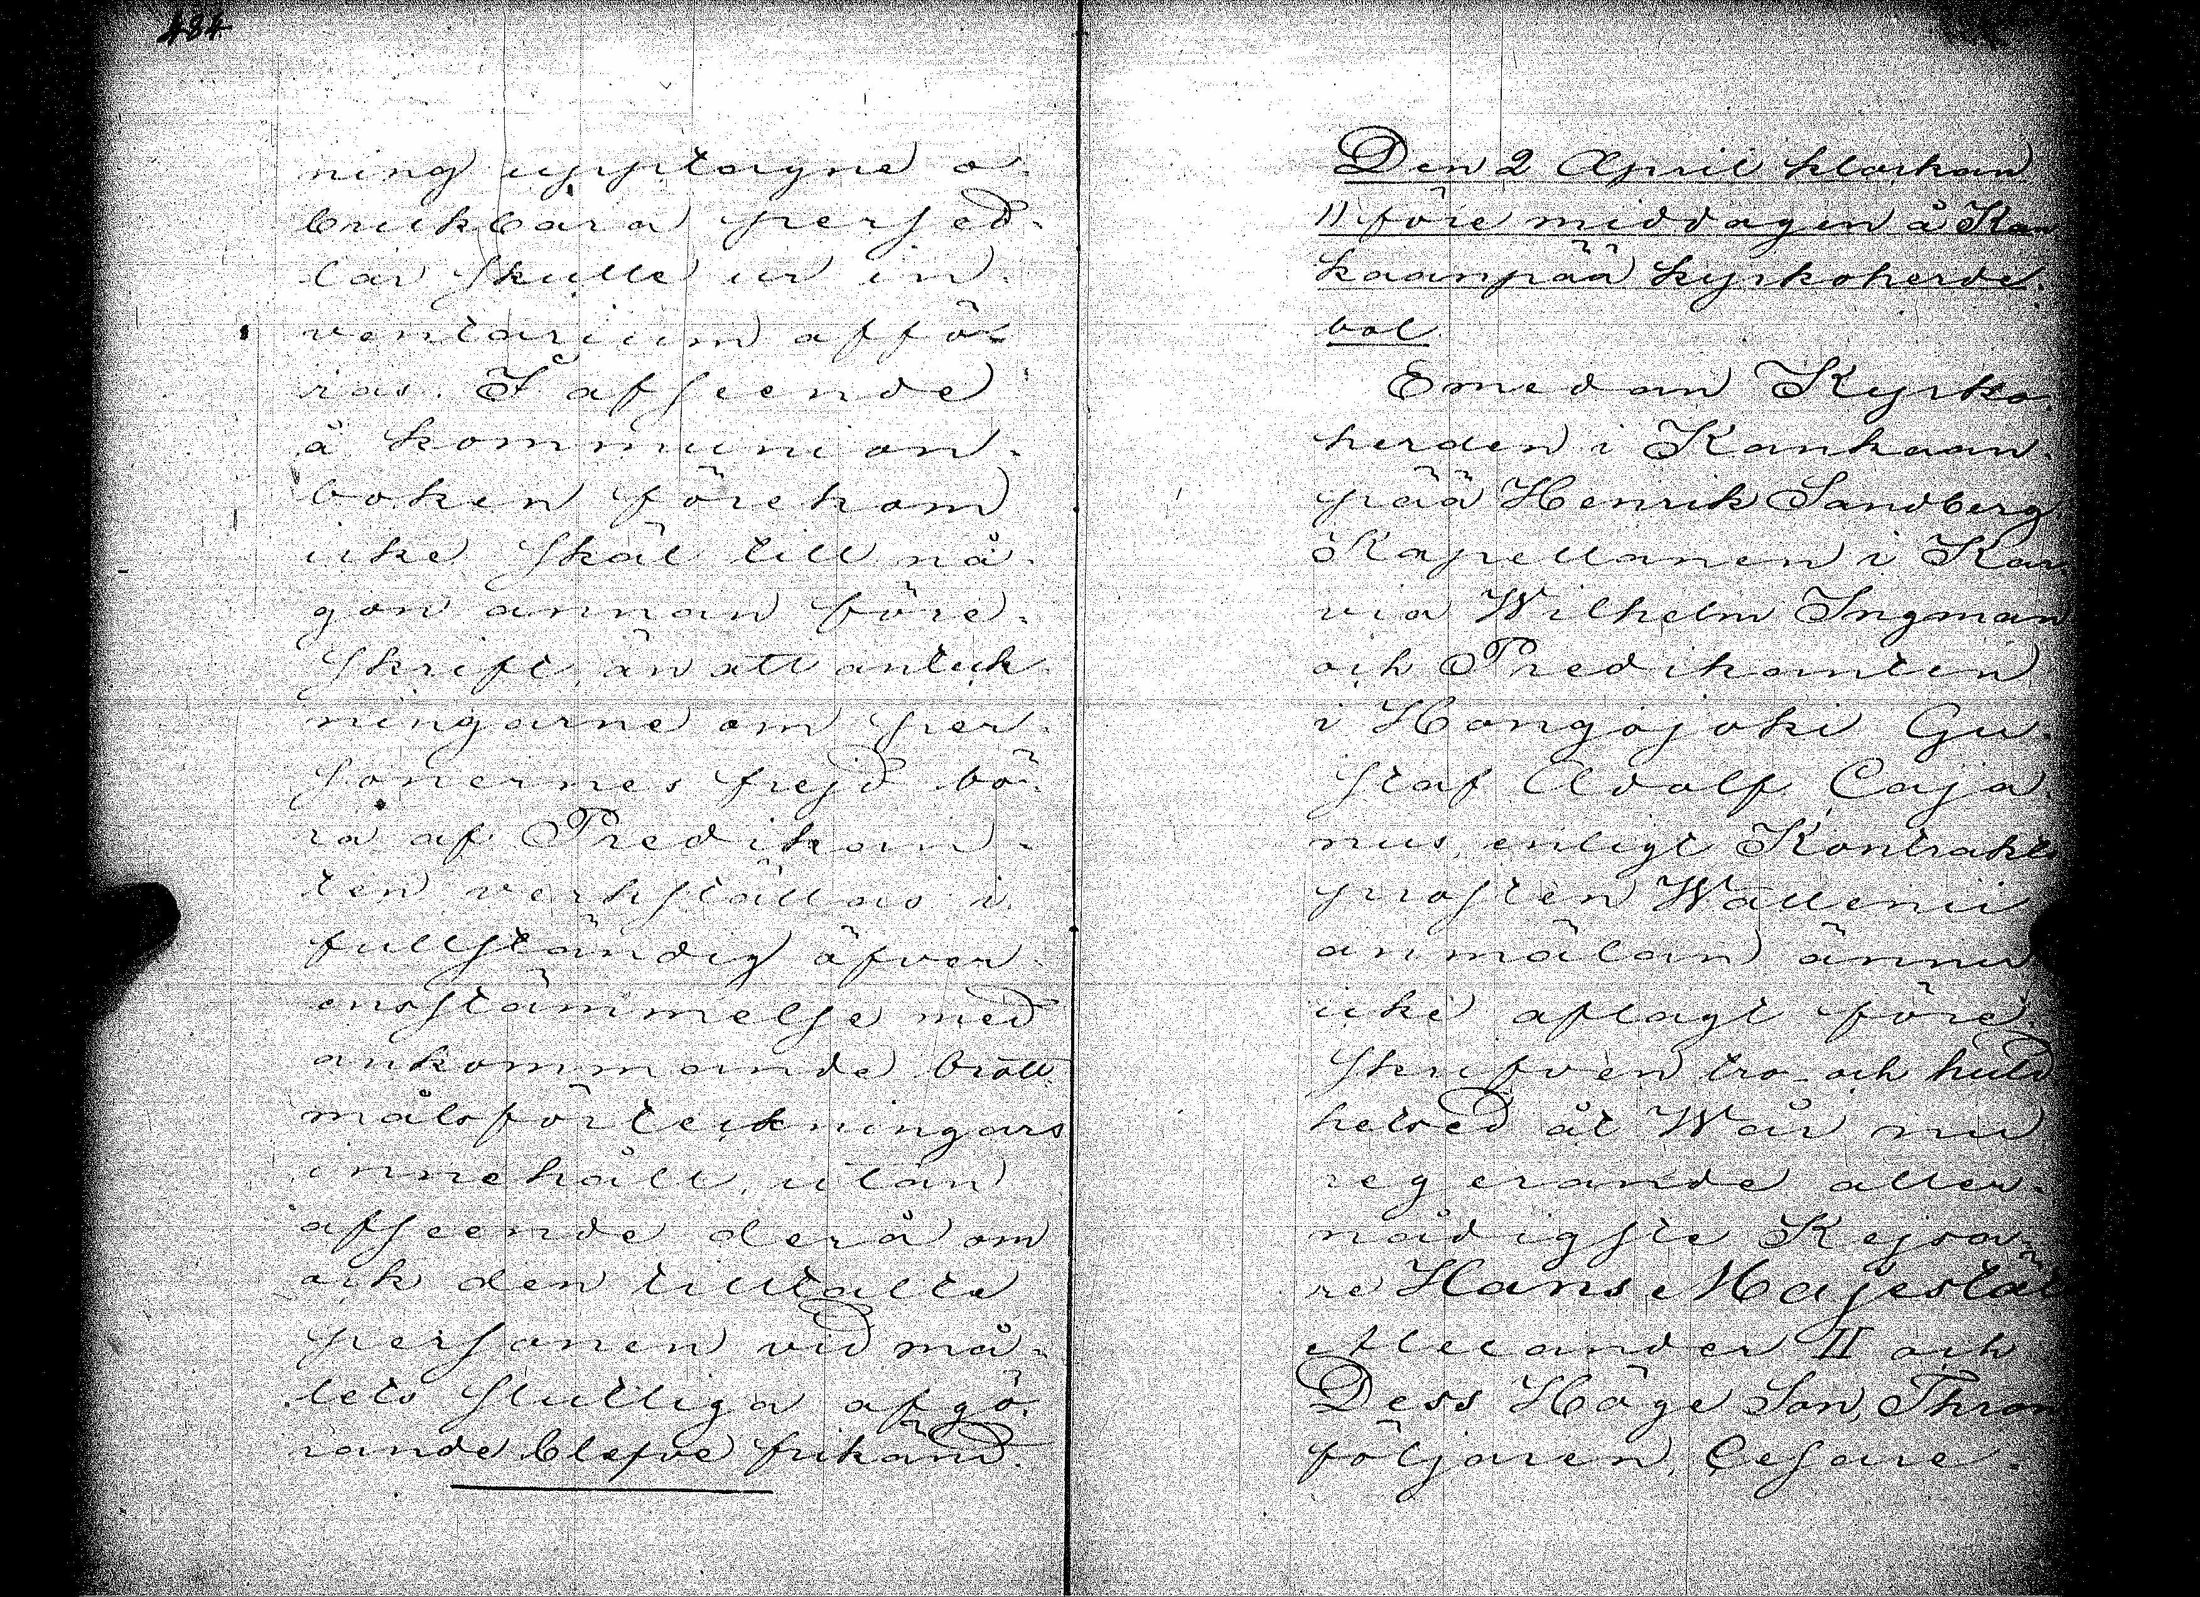 484
ning upptagne o-
brukbara persed-
lar skulle ur in-
ventarium affö-
ras. I afseende
å kommunion-
boken förekom
icke skäl till nå-
gon annan före-
skrift, än att anteck-
ningarne om per-
sonernes frejd bö-
ra af Predikan-
ten verkställas i
fullständig öfver-
ensstämmelse med
ankommande brott-
målsförteckningars
innehåll, utan
afseende derå om
ock den tilltalte
personen vid må-
lets slutliga afgö-
rande blefve frikänd.
Den 2 April klockan
11 före middagen å Kan
kaanpää kyrkoherde-
bol
Emedan Kyrko-
herden i Kankaan-
pää Henrik Sandberg
Kapellanen i Kar-
via Wilhelm Ingman
och Predikanten
i Hongojoki Gu-
staf Adolf Caja-
nus, enligt Kontrakts
prosten Wallenii
anmälan ännu
icke aflagt före-
skrifven tro- och huld
hetsed åt Wår nu
regerande aller-
nådigste Kejsa-
re Hans Majestät
Alexander II och
Dess Höge Son, Thron
följaren, Cesare-